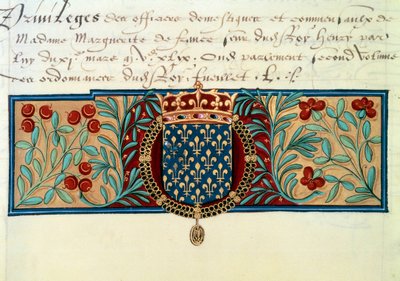 Privileges des officiers domesticques et commensaulx de
Madame Marguerite de france seur dud Roy Henry par
luy du xj mars
Oud parlement second volume
des ordonnances dud Roy fueillet